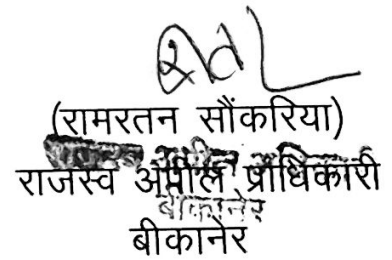 (रामरतन सौंकरिया)
राजस्व अपील प्राधिकारी
बीकानेर
बीकानेर